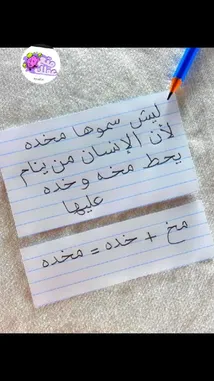 ليش سموها مخده
لأن الإنسان من ينام
يحط مخه وخده
عليها
مخ + خده = مخده